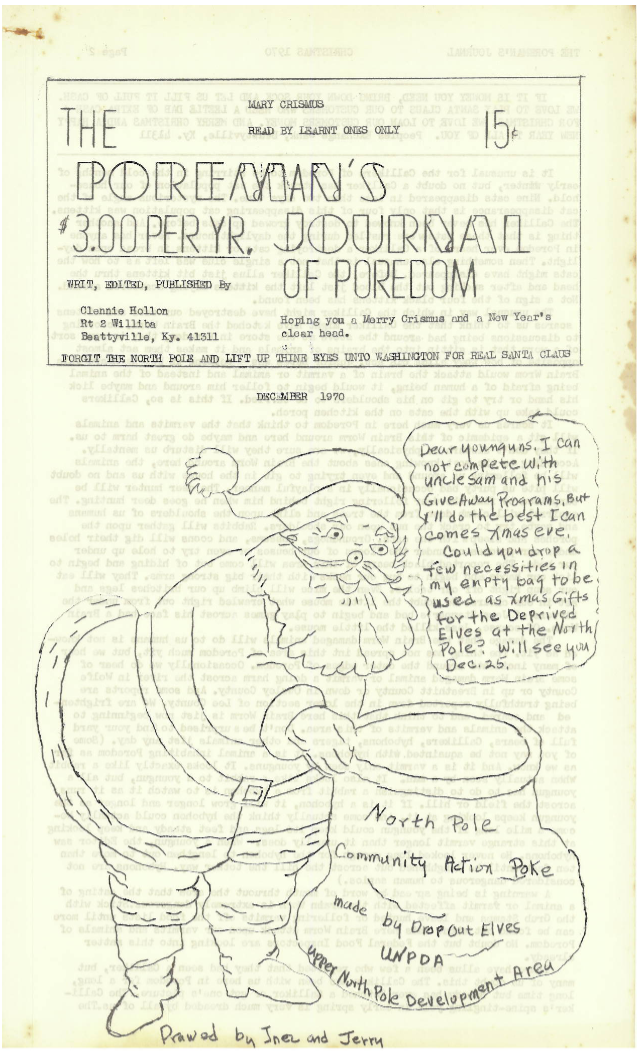 MARY CRISMUS
THE
READ BY LEARNT ONES ONLY
15¢
POREMAN'S
$3.00 PER YR. JOURNAL
OF POREDOM
WRIT, EDITED, PUBLISHED By
Clennie Hollon
Rt 2 Williba
Beattyville, Ky. 41311
Hoping you a Merry Crismus and a New Year's
clear head.
FORGIT THE NORTH POLE AND LIFT UP THINE EYES UNTO WASHINGTON FOR REAL SANTA CLAUS
DECEMBER 1970
Dear Younguns. I can
not compete with
uncle Sam and his
Give Away Programs. But
I'll do the best I can
comes Xmas eve.
Could you drop a
few necessities in
my empty bag to be
used as Xmas Gifts
for the Deprived
Elves at the North
Pole? Will see you
Dec. 25.
North Pole
Community Action Poke
made
by Drop Out Elves
UNPDA
Upper North Pole Development Area
Drawed by Inez and Jerry